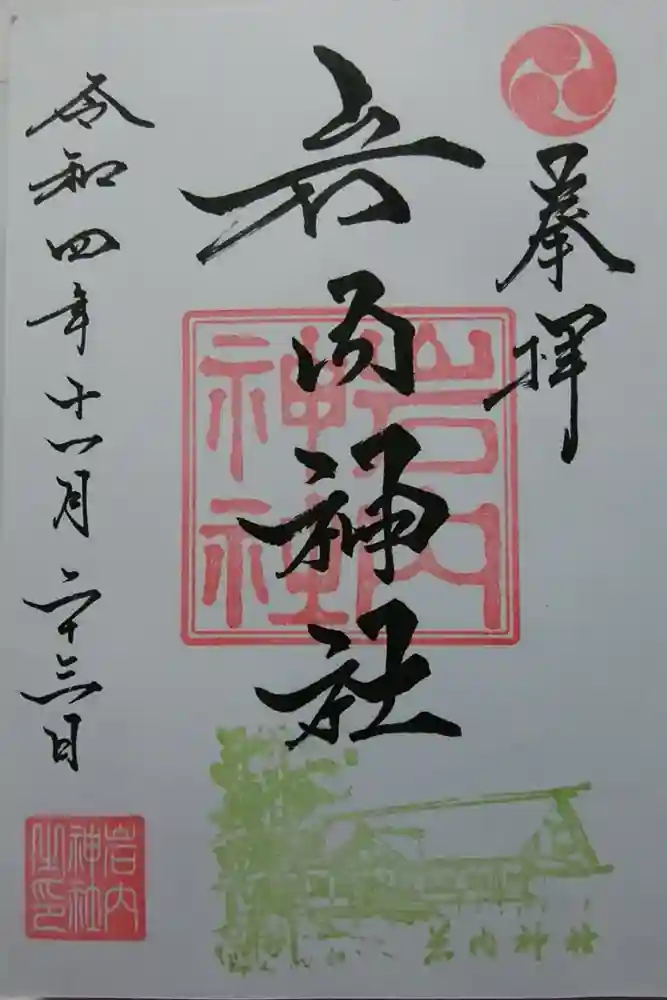 奉拝
岩内神社
令和四年十一月二十三日
岩内
神社
岩内
神社
之印
岩内神社